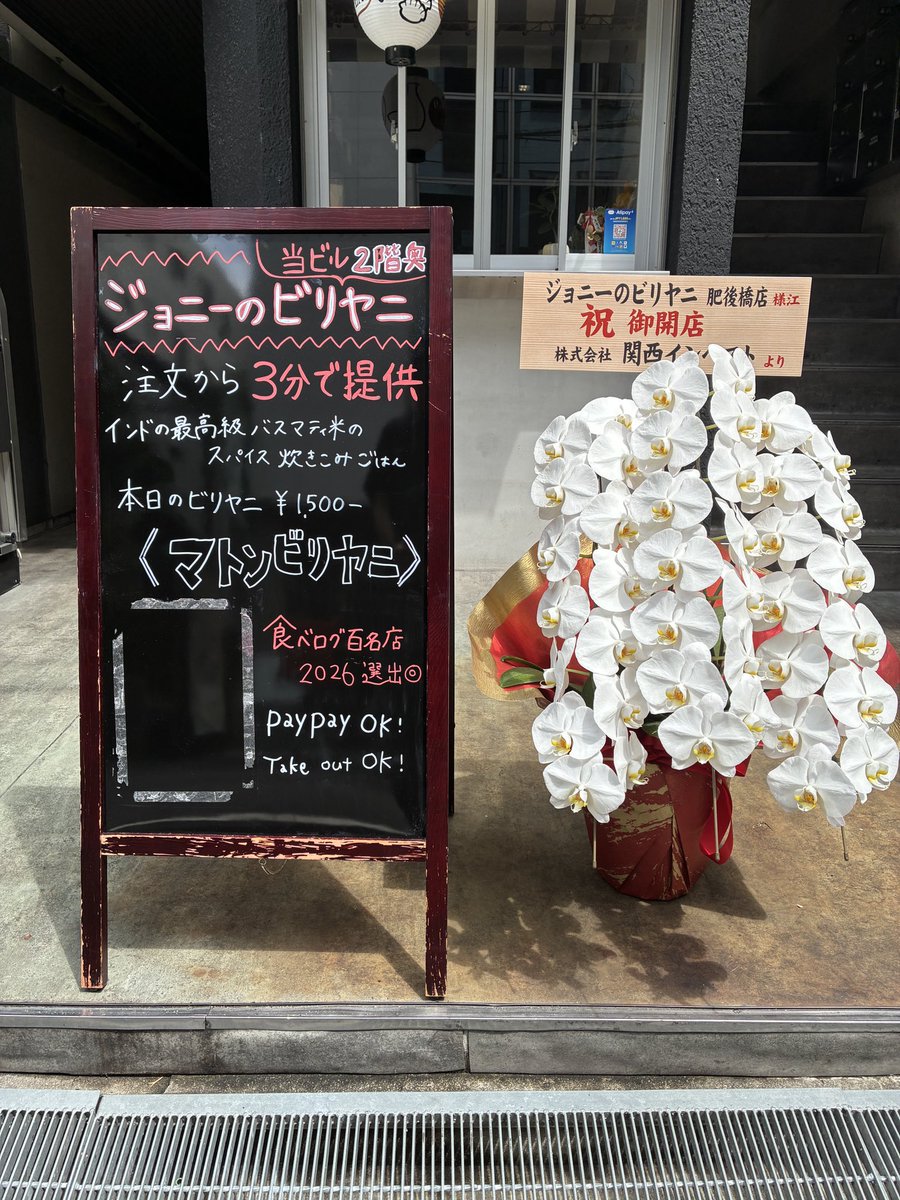 当ビル 2階奥
ジョニーのビリヤニ
注文から 3分で提供
インドの最高級 バスマティ米の
スパイス 炊きこみごはん
本日のビリヤニ ¥1,500-
〈マトンビリヤニ〉
食べログ百名店
2026 選出◎
PayPay OK!
Take out OK!
Alipay+
ジョニーのビリヤニ 肥後橋店 様江
祝 御開店
株式会社 関西インベスト より